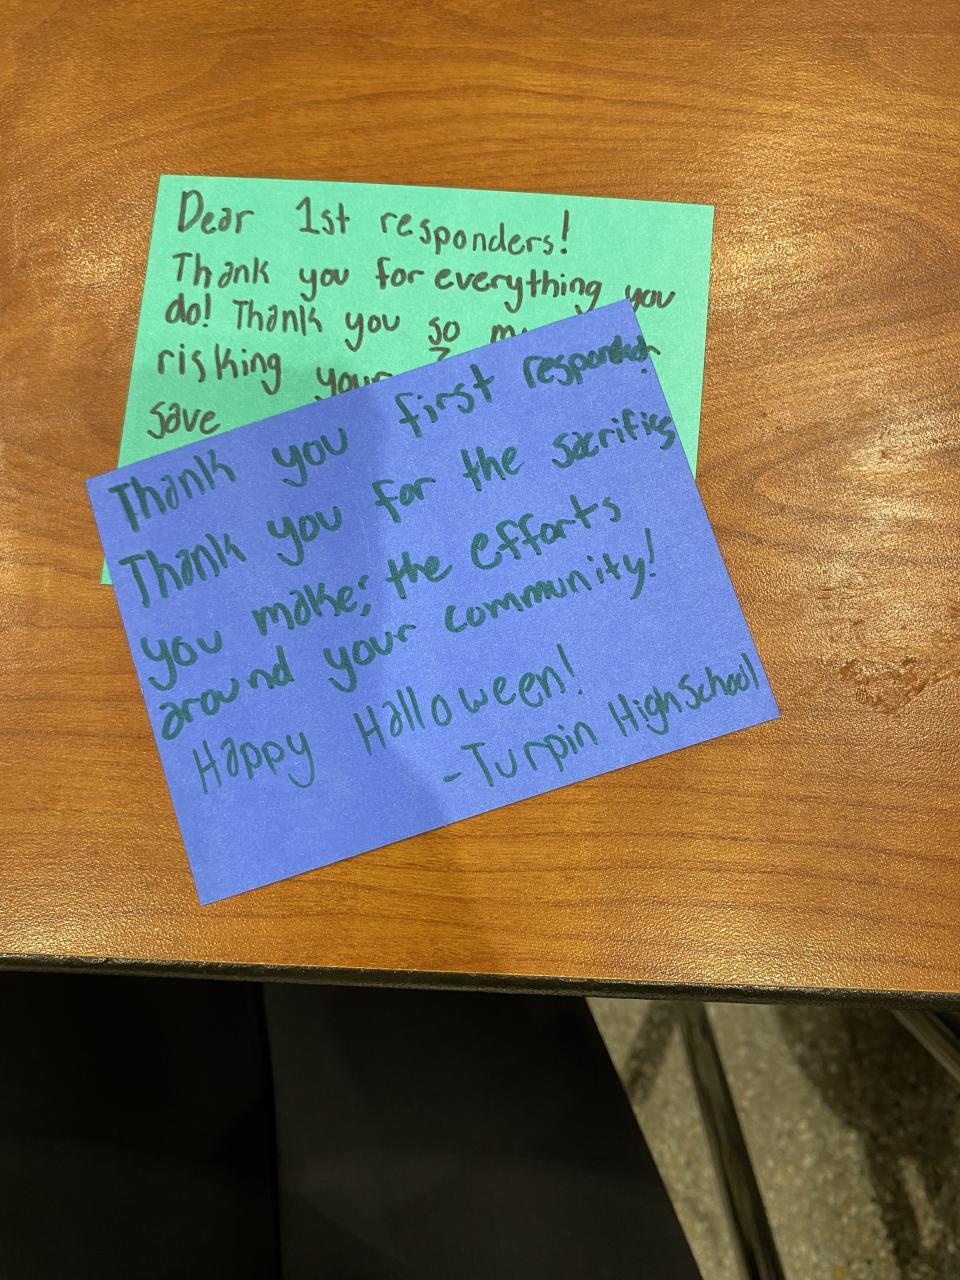 Dear 1st responders!
Thank you for everything you
do! Thank you so
risking
save
Thank you first
Thank you for the
you make; the efforts
around your community!
Happy Halloween!
-Turpin High School